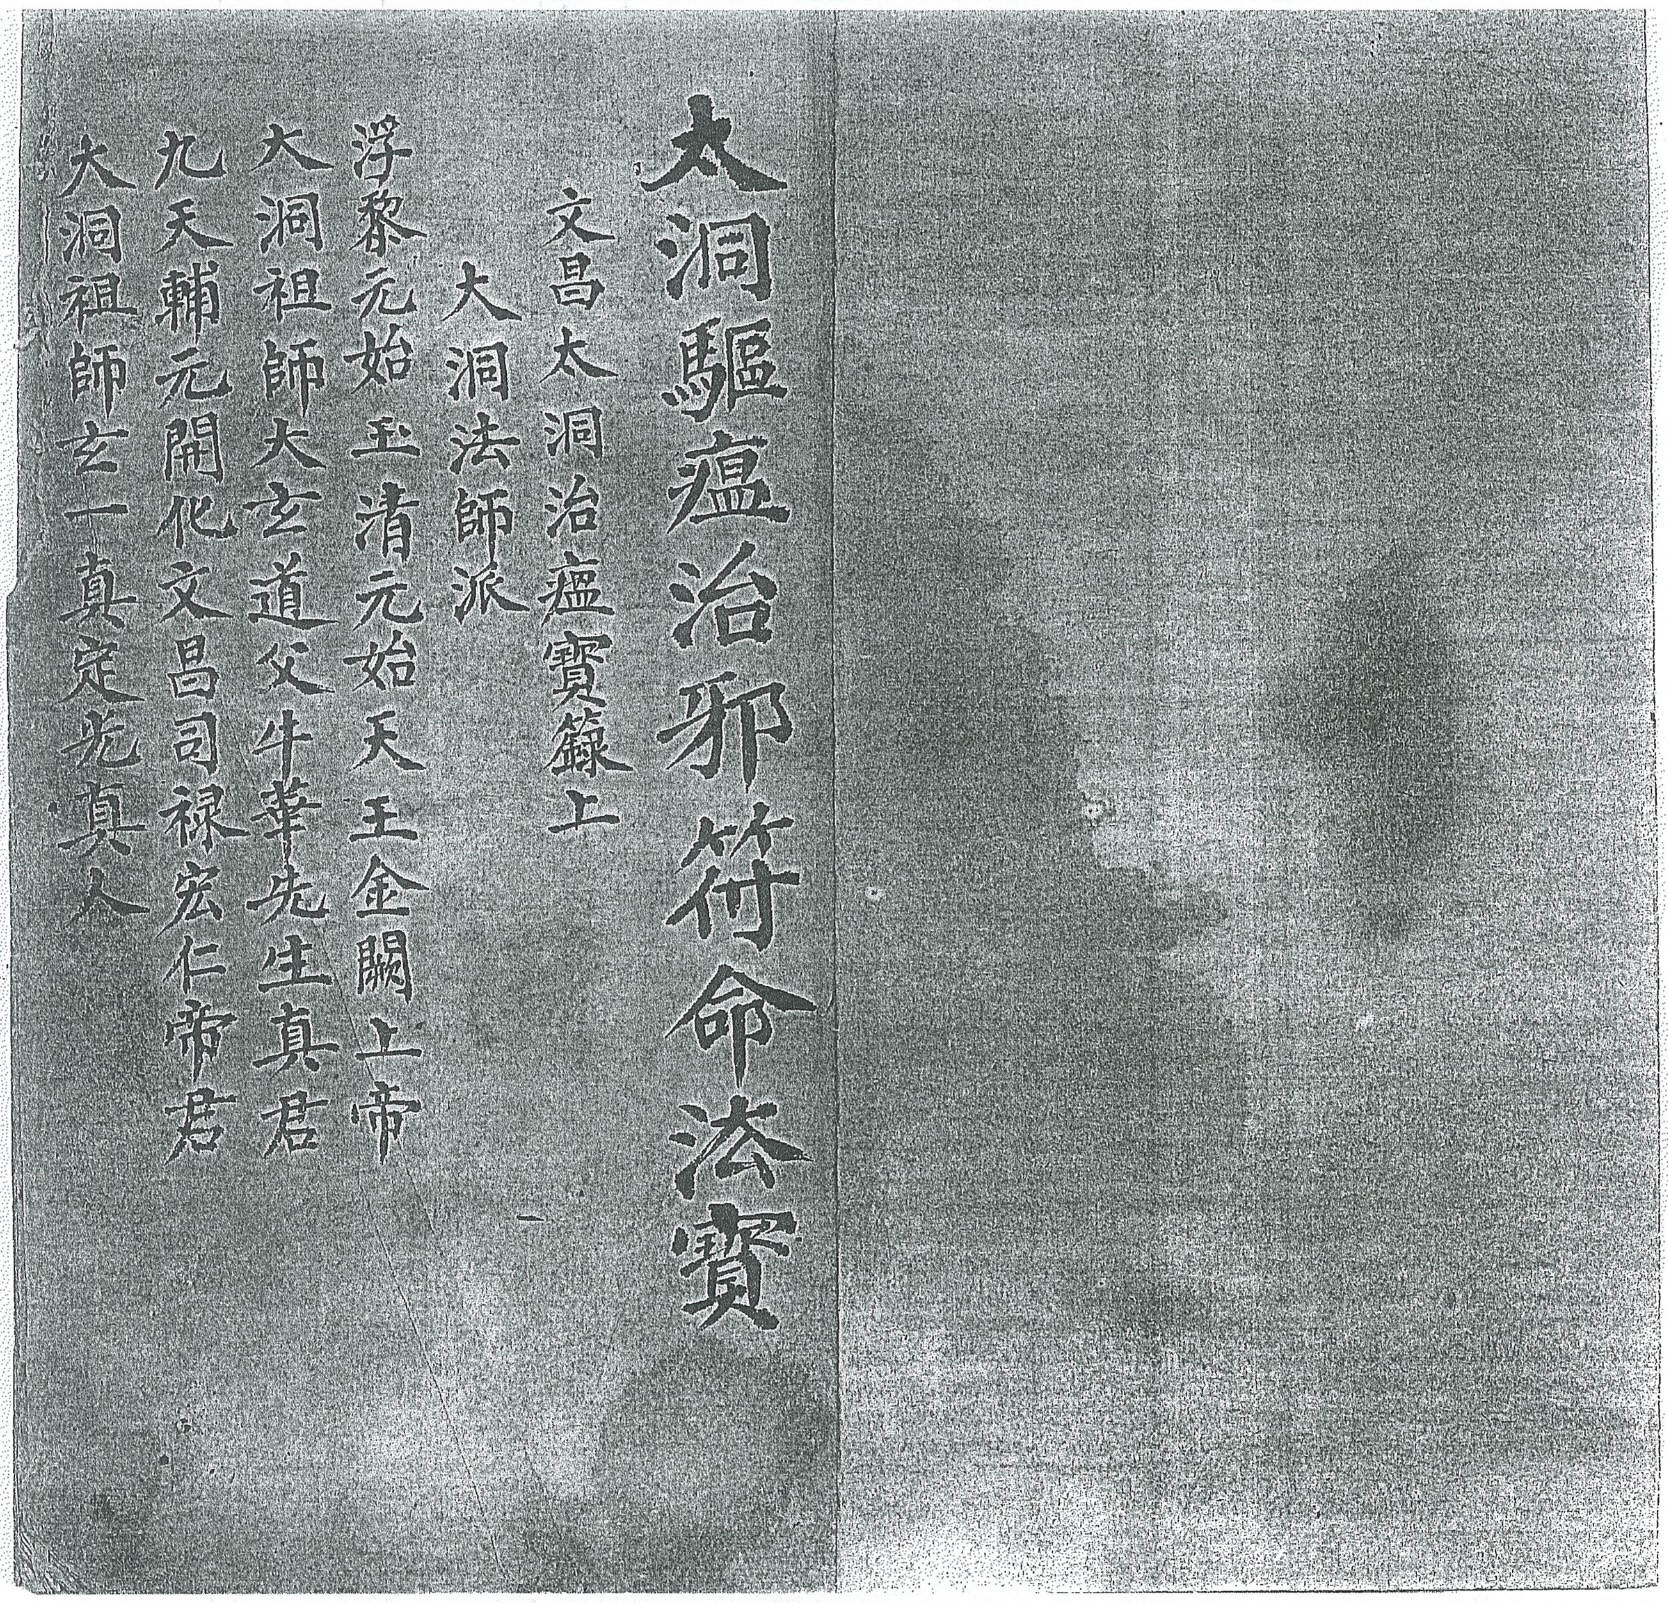 太洞驅瘟治邪符命法寶
文昌太洞治瘟寳籙上
大洞法師派
浮黎元始玉清元始天王金闕上帝
大洞祖師大玄道父牛華先生真君
九天輔元開化文昌司禄宏仁帝君
大洞祖師玄一真定光真人